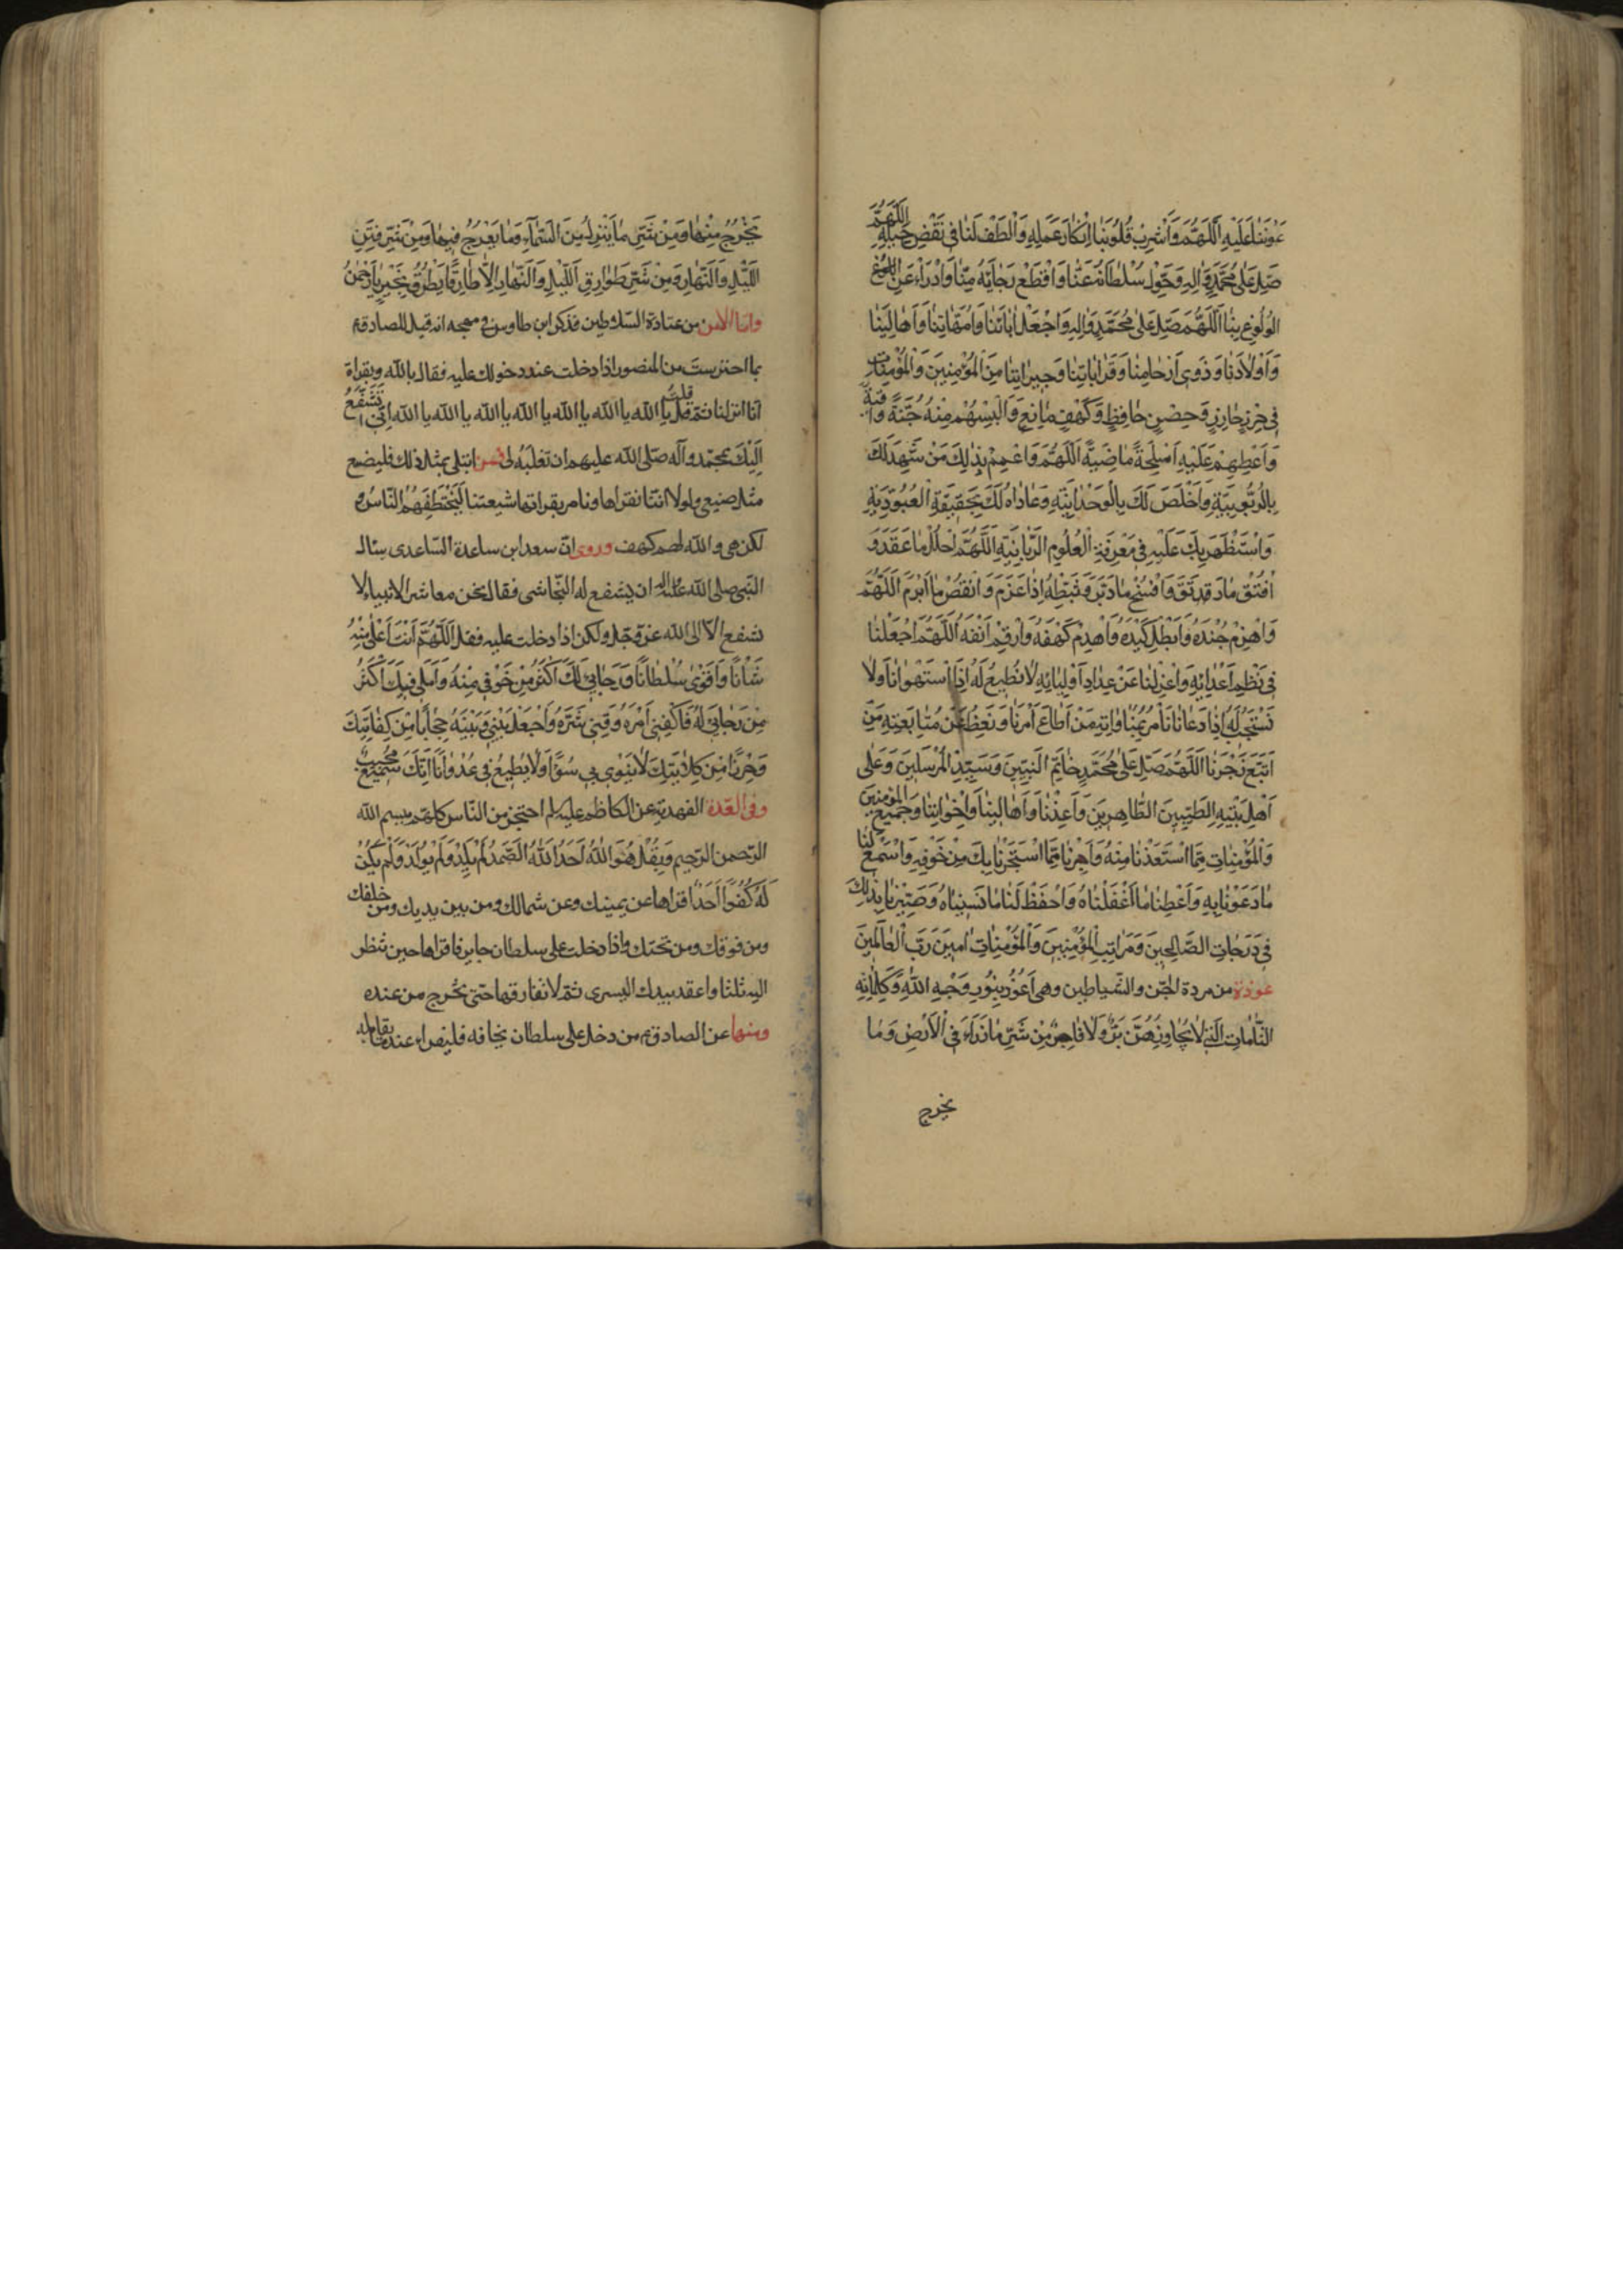 عَوْنَنَا عَلَيْهِ اَللّٰهُمَّ وَاَشْرِبْ قُلُوبَنَا اِنْكَارَ عَمَلِهِ وَالْطُفْ لَنَا فِي نَقْضِ حَبْلِهِ اَللّٰهُمَّ
صَلِّ عَلٰى مُحَمَّدٍ وَاٰلِهِ وَحَوِّلْ سُلْطَانَهُ عَنَّا وَاقْطَعْ رَجَاءَهُ مِنَّا وَادْرَاْهُ عَنِ
الْوُلُوعِ بِنَا اَللّٰهُمَّ صَلِّ عَلٰى مُحَمَّدٍ وَاٰلِهِ وَاجْعَلْ اٰبَاءَنَا وَاُمَّهَاتِنَا وَاَهَالِيَنَا
وَاَوْلَادَنَا وَذَوِي اَرْحَامِنَا وَقَرَابَاتِنَا وَجِيرَانِنَا مِنَ الْمُؤْمِنِينَ وَالْمُؤْمِنَاتِ
فِي حِرْزٍ حَارِزٍ وَحِصْنٍ حَافِظٍ وَكَهْفٍ مَانِعٍ وَاَلْبِسْهُمْ مِنْهُ جُنَّةً وَاقِيَةً
وَاَعْطِهِمْ عَلَيْهِ اَسْلِحَةً مَاضِيَةً اَللّٰهُمَّ وَاعْمُمْ بِذٰلِكَ مَنْ شَهِدَ لَكَ
بِالرُّبُوبِيَّةِ وَاَخْلَصَ لَكَ بِالْوَحْدَانِيَّةِ وَعَادَاهُ لَكَ بِحَقِيقَةِ الْعُبُودِيَّةِ
وَاسْتَظْهَرَ بِكَ عَلَيْهِ فِي مَعْرِفَةِ الْعُلُومِ الرَّبَّانِيَّةِ اَللّٰهُمَّ احْلُلْ مَا عَقَدَ وَ
افْتُقْ مَا رَتَقَ وَافْسَخْ مَا دَبَّرَ وَثَبِّطْهُ اِذَا عَزَمَ وَانْقُضْ مَا اَبْرَمَ اَللّٰهُمَّ
وَاهْزِمْ جُنْدَهُ وَاَبْطِلْ كَيْدَهُ وَاهْدِمْ كَهْفَهُ وَاَرْغِمْ اَنْفَهُ اَللّٰهُمَّ اجْعَلْنَا
فِي نَظْمِ اَعْدَائِهِ وَاعْزِلْنَا عَنْ عِدَادِ اَوْلِيَائِهِ لَا نُطِيعُ لَهُ اِذَا اسْتَهْوَانَا وَلَا
نَسْتَجِيبُ لَهُ اِذَا دَعَانَا نَاْمُرُ بِمُنَاوَاتِهِ مَنْ اَطَاعَ اَمْرَنَا وَنَعِظُ عَنْ مُتَابَعَتِهِ مَنِ
اتَّبَعَ زَجْرَنَا اَللّٰهُمَّ صَلِّ عَلٰى مُحَمَّدٍ خَاتَمِ النَّبِيِّينَ وَسَيِّدِ الْمُرْسَلِينَ وَعَلٰى
اَهْلِ بَيْتِهِ الطَّيِّبِينَ الطَّاهِرِينَ وَاَعِذْنَا وَاَهَالِيَنَا وَاِخْوَانَنَا وَجَمِيعَ الْمُؤْمِنِينَ
وَالْمُؤْمِنَاتِ مِمَّا اسْتَعَذْنَا مِنْهُ وَاَجِرْنَا مِمَّا اسْتَجَرْنَا بِكَ مِنْ خَوْفِهِ وَاسْمَعْ لَنَا
مَا دَعَوْنَا بِهِ وَاَعْطِنَا مَا اَغْفَلْنَاهُ وَاحْفَظْ لَنَا مَا نَسِينَاهُ وَصَيِّرْنَا بِذٰلِكَ
فِي دَرَجَاتِ الصَّالِحِينَ وَمَرَاتِبِ الْمُؤْمِنِينَ وَالْمُؤْمِنَاتِ اٰمِينَ رَبَّ الْعَالَمِينَ
عوذة من مردة الجن والشياطين وهى اَعُوذُ بِنُورِ وَجْهِ اللّٰهِ وَكَلِمَاتِهِ
التَّامَّاتِ الَّتِي لَا يُجَاوِزُهُنَّ بَرٌّ وَلَا فَاجِرٌ مِنْ شَرِّ مَا ذَرَاَ فِي الْاَرْضِ وَمَا
يخرج
يَخْرُجُ مِنْهَا وَمِنْ شَرِّ مَا يَنْزِلُ مِنَ السَّمَاءِ وَمَا يَعْرُجُ فِيهَا وَمِنْ شَرِّ فِتَنِ
اللَّيْلِ وَالنَّهَارِ وَمِنْ شَرِّ طَوَارِقِ اللَّيْلِ وَالنَّهَارِ اِلَّا طَارِقًا يَطْرُقُ بِخَيْرٍ يَا رَحْمٰنُ
واما الامن من السلاطين فذكر ابن طاوس فى مهجه انه قيل للصادق ع
بما احترست من المنصور اذا دخلت عند دخولك عليه فقال بالله وبقراة
انا انزلنا ثم قلت يا الله يا الله يا الله يا الله يا الله يا الله يا الله اِنِّي اَتَشَفَّعُ
اِلَيْكَ بمحمد وآله صلى الله عليهم ان تغلبه لى فمن ابتلى بمثل ذلك فليصنع
مثل صنيعى ولولا اننا نقراها ونامر بقراتها شيعتنا لَتَخَطَّفَهُمُ النَّاسُ و
لكن هى والله لهم كهف وروى ان سعد ابن ساعدة الساعدى سال
النبى صلى الله عليه واله ان يشفع له النجاشى فقال نحن معاشر الانبياء لا
نشفع الا الى الله عز وجل ولكن اذا دخلت عليه فقل اَللّٰهُمَّ اَنْتَ اَعْلٰى مِنْهُ
شَاْنًا وَاَقْوٰى سُلْطَانًا وَ لَكَ اَكْثَرُ مِنْ خَوْفِي مِنْهُ وَاَمَلِي فِيكَ اَكْثَرُ
مِنْ رَجَائِي لَهُ فَاكْفِنِي اَمْرَهُ وَقِنِي شَرَّهُ وَاجْعَلْ بَيْنِي وَبَيْنَهُ حِجَابًا مِنْ كِفَايَتِكَ
وَحِرْزًا مِنْ كِلَائَتِكَ لَا يَنْوِي بِي سُوءًا وَلَا يُطِيعُ فِيَّ عُدْوَانًا اِنَّكَ سَمِيعٌ مُجِيبٌ
وفى العدة الفهدية عن الكاظم عليه السلام احتجز من الناس كلهم ببسم الله
الرحمن الرحيم وَبِقُلْ هُوَ اللّٰهُ اَحَدٌ اَللّٰهُ الصَّمَدُ لَمْ يَلِدْ وَلَمْ يُولَدْ وَلَمْ يَكُنْ
لَهُ كُفُوًا اَحَدٌ اقراها عن يمينك وعن شمالك ومن بين يديك ومن خلفك
ومن فوقك ومن تحتك واذا دخلت على سلطان جاير فاقراها حين تنظر
اليه ثلثا واعقد بيدك اليسرى ثم لا تفارقها حتى تخرج من عنده
ومنها عن الصادق ع من دخل على سلطان يخافه فليقراء عند